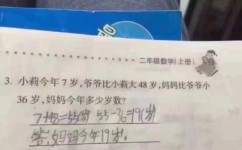 二年级数学(上册)
3. 小莉今年7岁,爷爷比小莉大48岁,妈妈比爷爷小
36岁,妈妈今年多少岁数?
7+48=55岁 55-36=19(岁)
答:妈妈今年19岁。